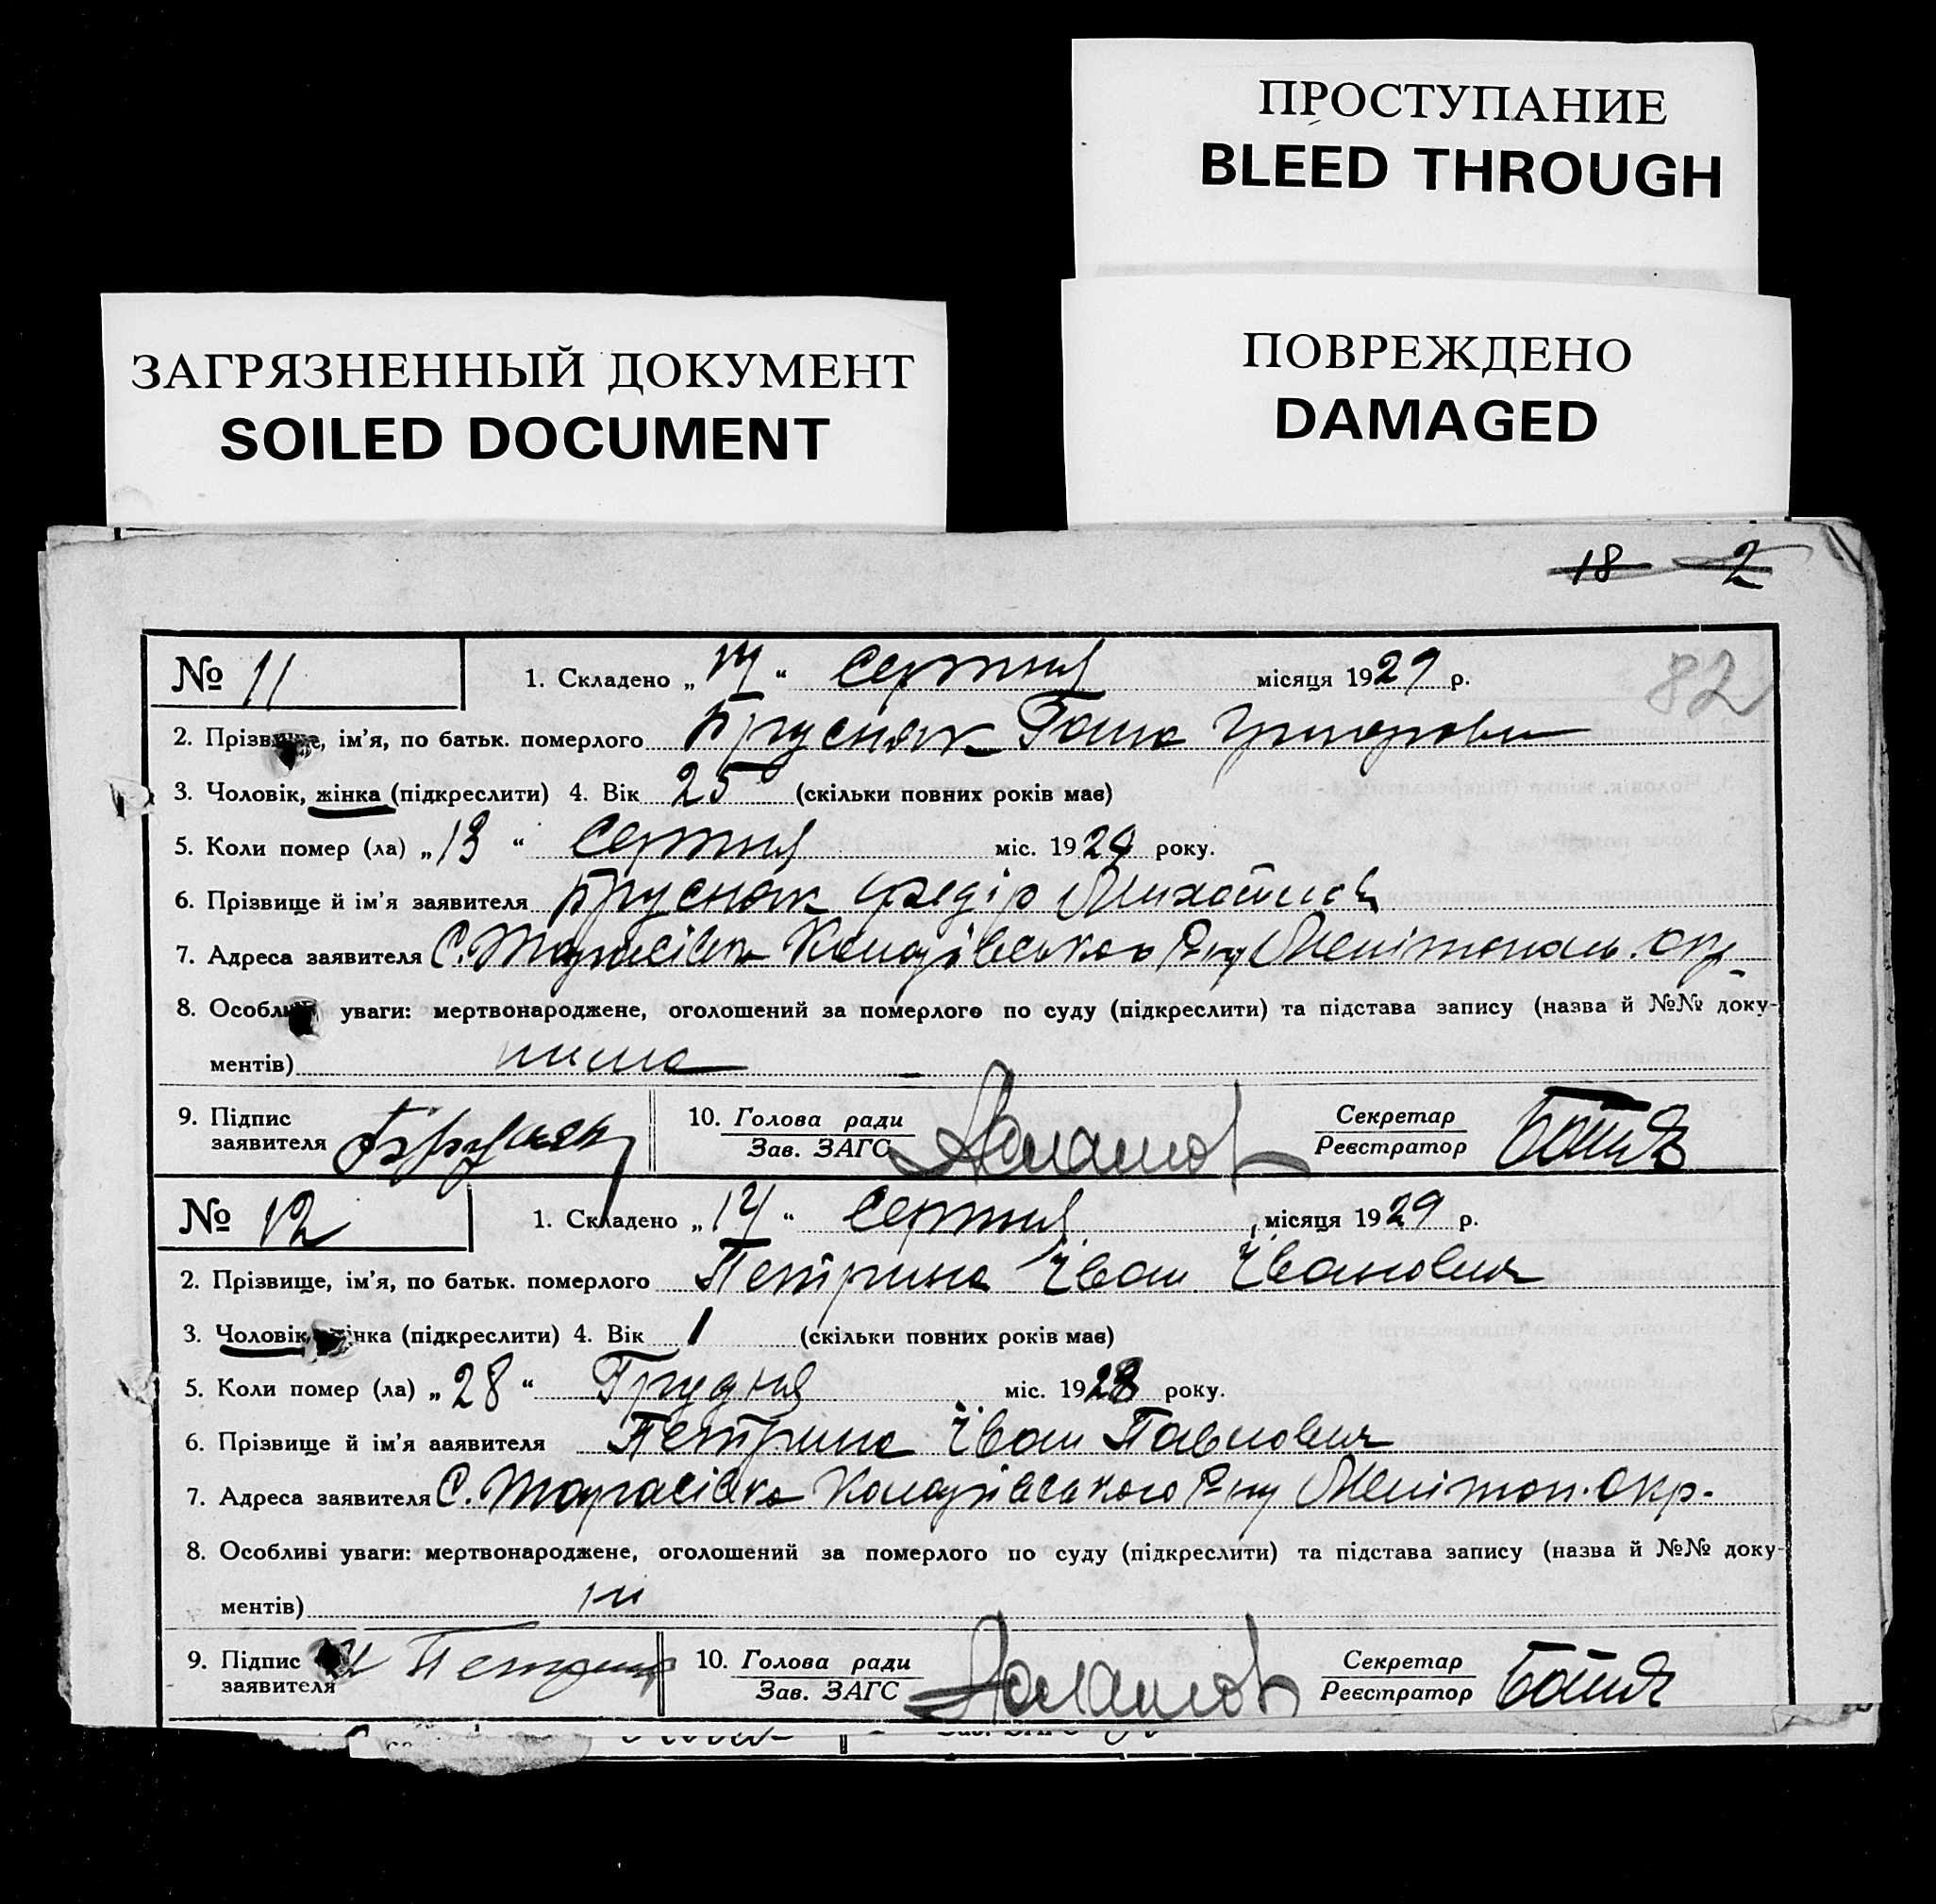 ПРОСТУПАНИЕ
BLEED THROUGH
ЗАГРЯЗНЕННЫЙ ДОКУМЕНТ
SOILED DOCUMENT
ПОВРЕЖДЕНО
DAMAGED
18 2
82
№ 11 1. Складено „14“ Серпня місяця 1929 р.
2. Прізвище, ім'я, по батьк. померлого Брусняк
3. Чоловік, жінка (підкреслити) 4. Вік 25 (скільки повних років має)
5. Коли помер (ла) „13“ Серпня міс. 1929 року.
6. Прізвище й ім'я заявителя Брусняк Федір
7. Адреса заявителя С. Тарасівка Р-ну Мелітополь. Окр.
8. Особливі уваги: мертвонароджене, оголошений за померлого по суду (підкреслити) та підстава запису (назва й №№ доку-
ментів)
9. Підпис заявителя Брусняк 10. Голова ради Зав. ЗАГС Секретар Реєстратор
№ 12 1. Складено „14“ Серпня місяця 1929 р.
2. Прізвище, ім'я, по батьк. померлого Петрина Іван Іванович
3. Чоловік, жінка (підкреслити) 4. Вік 1 (скільки повних років має)
5. Коли помер (ла) „28“ Грудня міс. 1928 року.
6. Прізвище й ім'я ааявителя Петрина Іван Павлович
7. Адреса заявителя С. Тарасівка Р-ну Меліто п. Окр.
8. Особливі уваги: мертвонароджене, оголошений за померлого по суду (підкреслити) та підстава запису (назва й №№ доку-
ментів)
9. Підпис заявителя 10. Голова ради Зав. ЗАГС Секретар Реєстратор